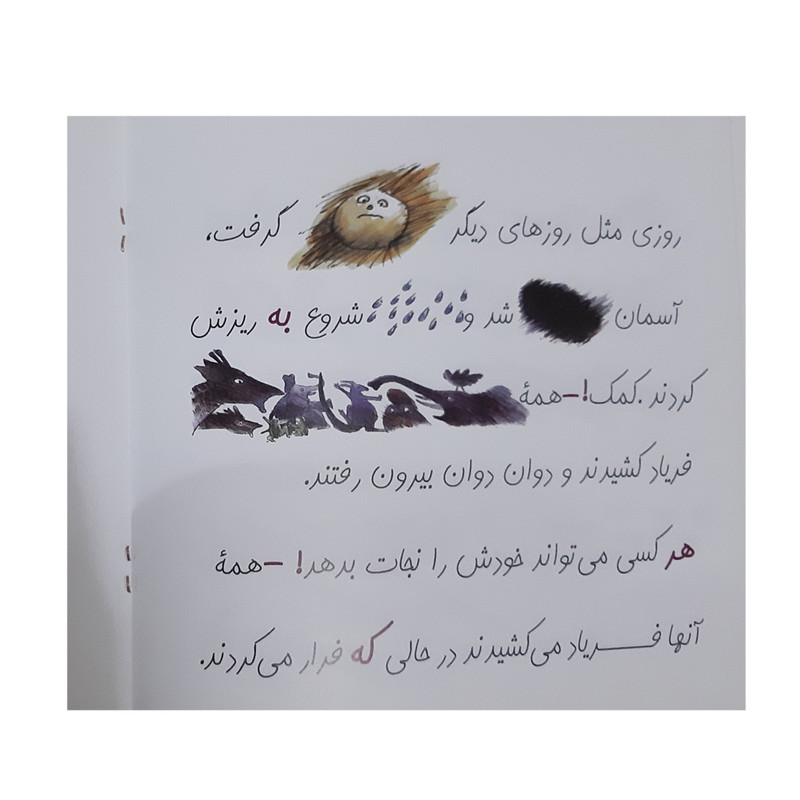 روزی مثل روزهای دیگر گرفت،
آسمان شد و شروع به ریزش
کردند. کمک! – همهٔ
فریاد کشیدند و دوان دوان بیرون رفتند.
هر کسی می‌تواند خودش را نجات بدهد! – همهٔ
آنها فـــریاد می‌کشیدند در حالی که فرار می‌کردند.